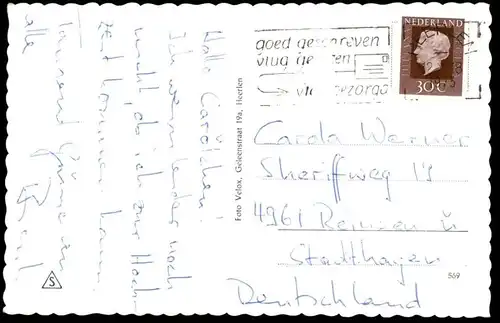 Hallo Carölchen!
Ich kann leider noch
nicht, da ich zur Hoch-
zeit kommen kann.
Tausend Grüsse an
alle
Foto Velox, Geleenstraat 19a, Heerlen
goed geschreven
vlug gelezen
vlug bezorgd
NEDERLAND
30 c
Carola Werner
Sheriffweg 19
4961 Reinsen ü
Stadthagen
Deutschland
569
S